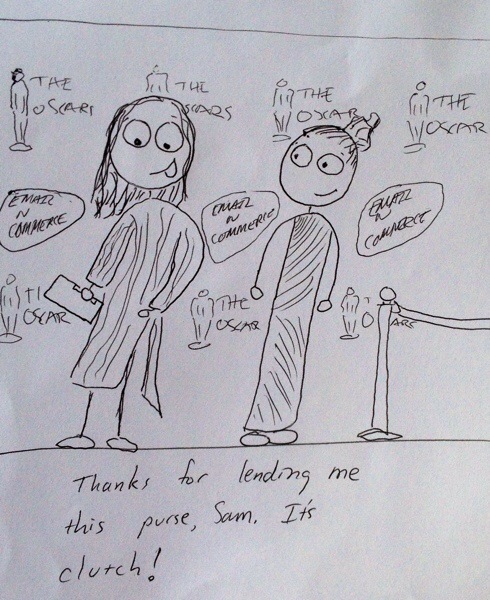 THE
OSCARS
THE
SCARS
THE
OSCAR
THE
OSCAR
EMAIL
N
COMMERCE
EMAIL
N
COMMERCE
EMAIL
N
COMMERCE
TI
OSCAR
THE
OSCAR
T
O ARS
Thanks for lending me
this purse, Sam. It's
clutch!